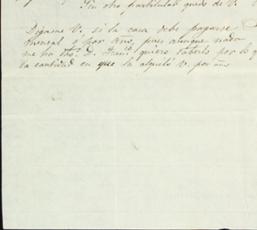 Sin otra particularidad quedo de V.
Digame V. si la casa debe pagarse
mensual o por año, pues aunque nada
me ha dho. D. Franco. quiero saberlo por lo q
la cantidad en que la alquiló V. por año